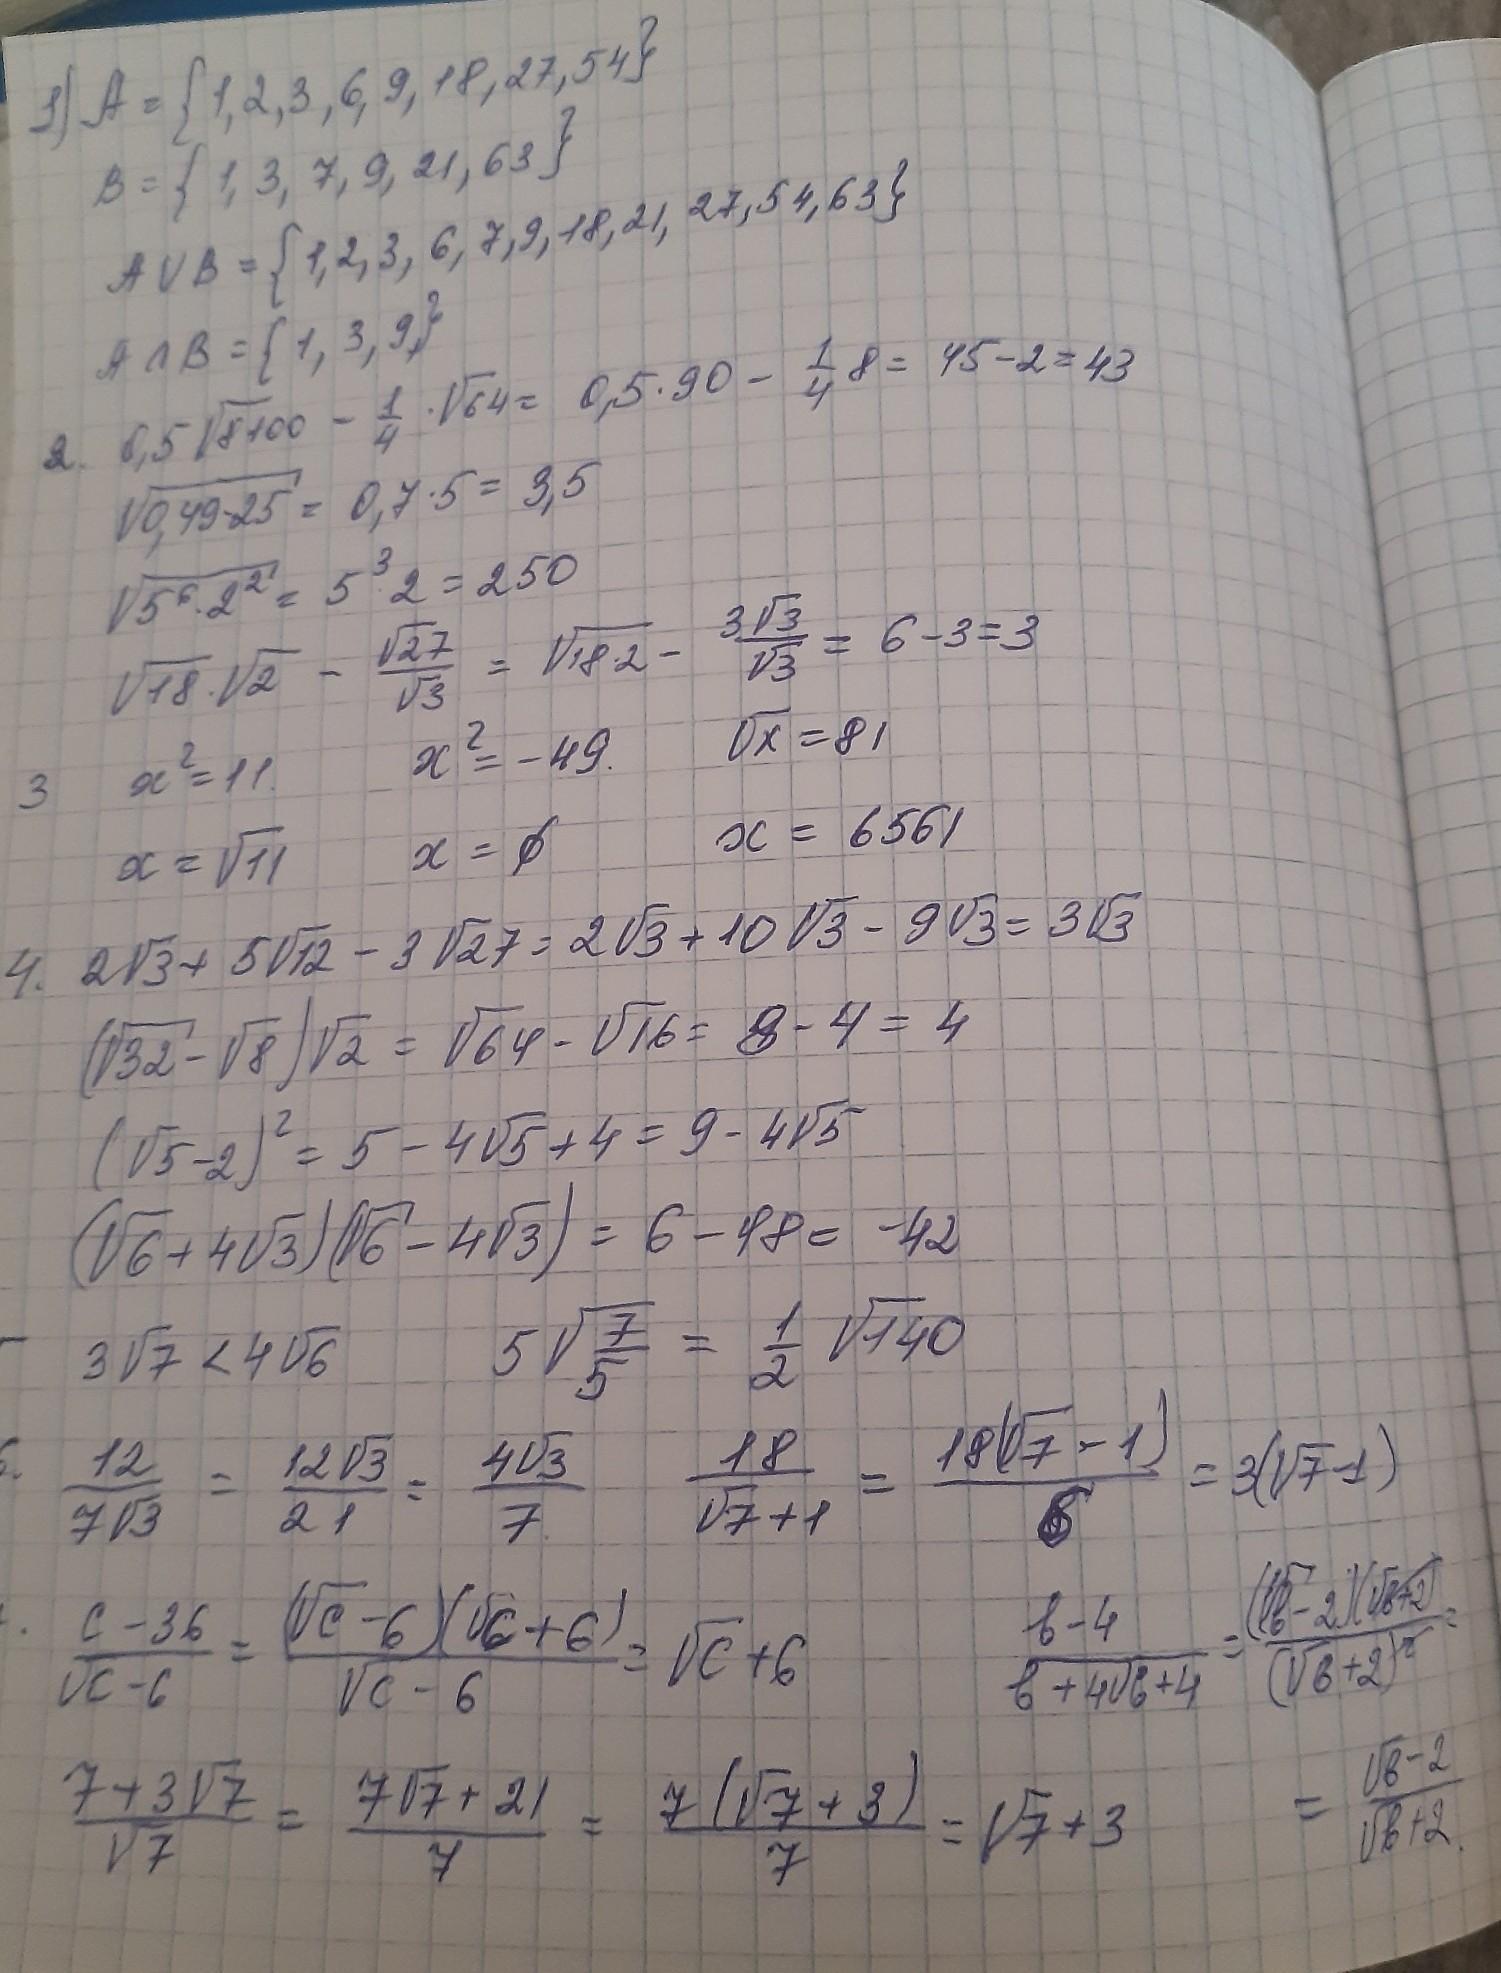 1) A = {1, 2, 3, 6, 9, 18, 27, 54}
B = {1, 3, 7, 9, 21, 63}
A ∪ B = {1, 2, 3, 6, 7, 9, 18, 21, 27, 54, 63}
A ∩ B = {1, 3, 9,}
2. 0,5 √8100 − 1/4 · √64 = 0,5 · 90 − 1/4 8 = 45 − 2 = 43
√(0,49·25) = 0,7 · 5 = 3,5
√(5⁶ · 2²) = 5³ · 2 = 250
√18 · √2 − √27/√3 = √(18·2) − 3√3/√3 = 6 − 3 = 3
3 x² = 11. x² = −49. √x = 81
x = √11 x = ∅ x = 6561
4. 2√3 + 5√12 − 3√27 = 2√3 + 10√3 − 9√3 = 3√3
(√32 − √8)√2 = √64 − √16 = 8 − 4 = 4
(√5 − 2)² = 5 − 4√5 + 4 = 9 − 4√5
(√6 + 4√3)(√6 − 4√3) = 6 − 48 = −42
3√7 < 4√6 5√(7/5) = 1/2 √140
6. 12/(7√3) = 12√3/21 = 4√3/7. 18/(√7 + 1) = 18(√7 − 1)/6 = 3(√7 − 1)
c − 36/(√c − 6) = (√c − 6)(√c + 6)/(√c − 6) = √c + 6 b − 4/(b + 4√b + 4) = (√b − 2)(√b + 2)/(√b + 2)² =
(7 + 3√7)/√7 = (7√7 + 21)/7 = 7(√7 + 3)/7 = √7 + 3 = (√b − 2)/(√b + 2).